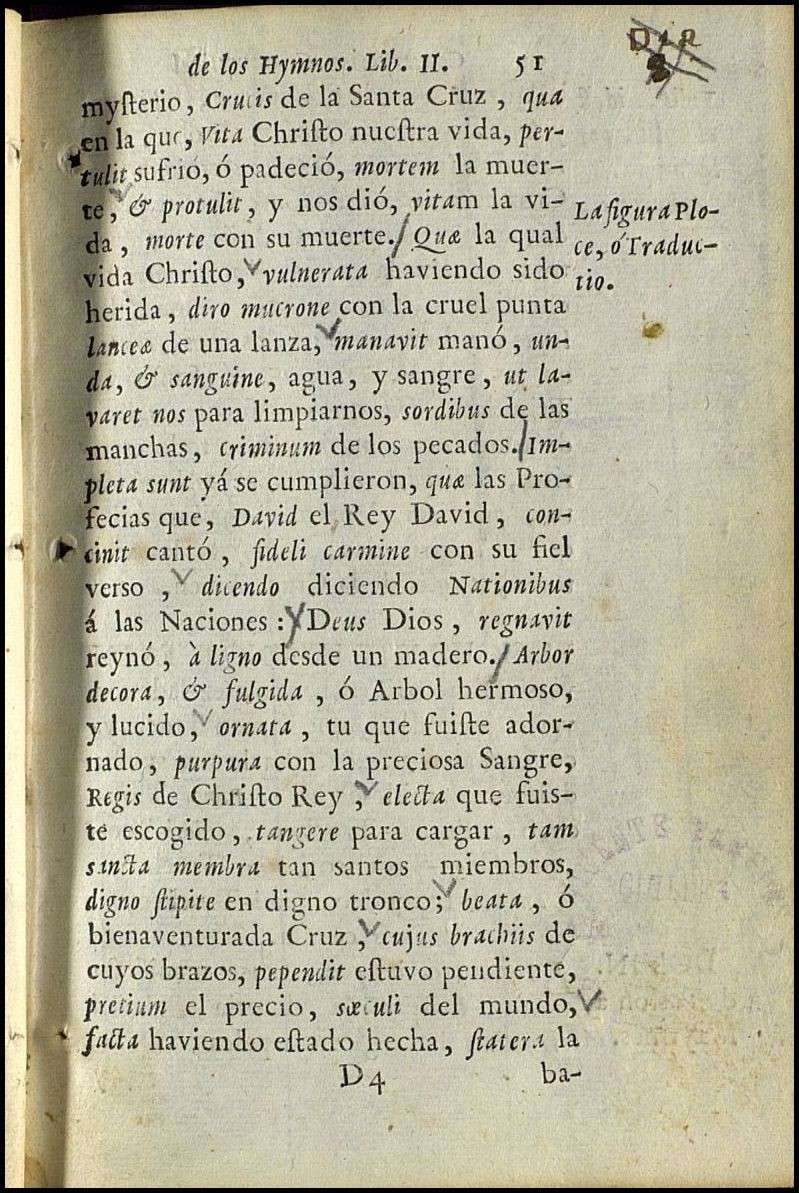 de los Hymnos. Lib. II. 51
myſterio, Crucis de la Santa Cruz, qua
en la que, Vita Chriſto nueſtra vida, per-
tulit sufrió, ó padeció, mortem la muer-
te, & protulit, y nos dió, vitam la vi-
da, morte con su muerte. Quæ la qual
vida Chriſto, vulnerata haviendo sido
herida, diro mucrone con la cruel punta
lanceæ de una lanza, manavit manó, un-
da, & sanguine, agua, y sangre, ut la-
varet nos para limpiarnos, sordibus de las
manchas, criminum de los pecados. Im-
pleta sunt yá se cumplieron, quæ las Pro-
fecias que, David el Rey David, con-
cinit cantó, fideli carmine con su fiel
verso, dicendo diciendo Nationibus
á las Naciones: Deus Dios, regnavit
reynó, à ligno desde un madero. Arbor
decora, & fulgida, ó Arbol hermoso,
y lucido, ornata, tu que fuiſte ador-
nado, purpura con la preciosa Sangre,
Regis de Chriſto Rey, electa que fuis-
te escogido, tangere para cargar, tam
sancta membra tan santos miembros,
digno ſtipite en digno tronco; beata, ó
bienaventurada Cruz, cujus brachiis de
cuyos brazos, pependit eſtuvo pendiente,
pretium el precio, sæculi del mundo,
facta haviendo eſtado hecha, ſtatera la
D4 ba-
La figura Plo-
ce, ó Traduc-
tio.